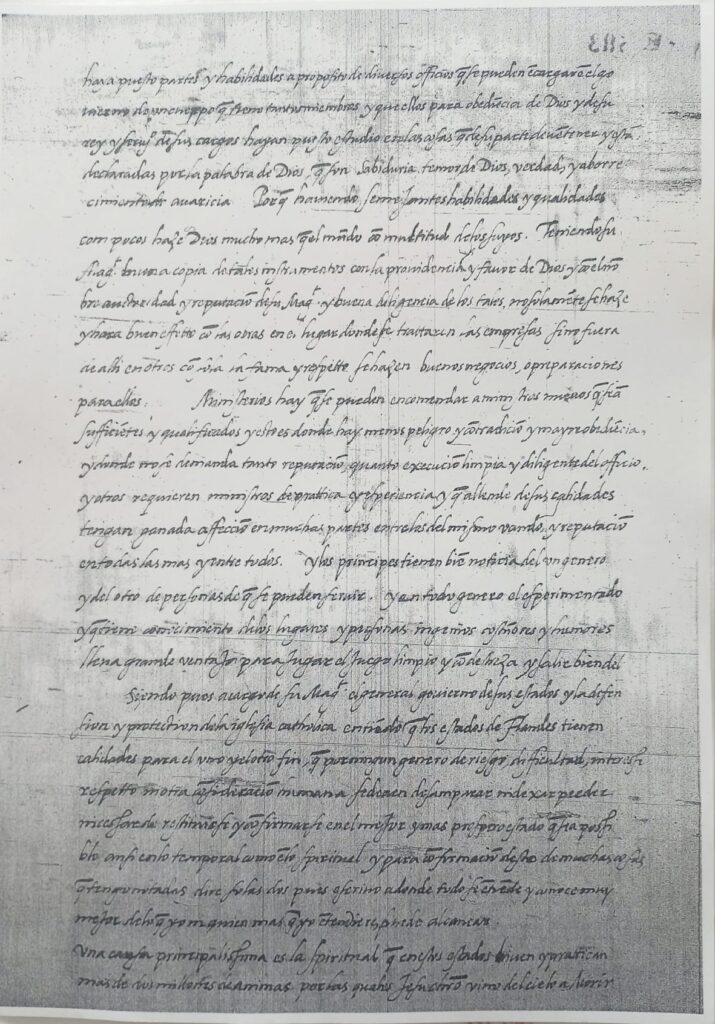 haya puesto partes y habilidades a proposito de diversos officios q̃ se pueden ẽcargar en el go
uierno de un cuerpo q̃ tiene tantos miembros y que ellos para obediẽcia de Dios y de su
rey y seruiº de sus cargos hayan puesto estudio en las cosas q̃ de su parte deuẽ tener y estã
declaradas por la palabra de Dios, q̃ son sabiduria, temor de Dios, verdad, y aborre
cimiento de auaricia Porq̃ hauiendo semejantes habilidades y qualidades
com pocos haze Dios mucho mas q̃ el mũdo cõ multitud de los suyos. Teniendo su
Magᵈ. buena copia de tales instrumentos con la prouidencia y fauor de Dios y cõ el nõ
bre auctoridad y reputaciõ de su Magᵈ. y buena diligencia de los tales, no solamẽte se haze
y hara buen effetto cõ las obras en el lugar donde se trattarẽ las empresas sino fuera
de alli en otros cõ sola la fama y respetto se hazen buenos negocios, o preparaciones
para ellos. Ministerios hay q̃ se pueden encomendar a ministros menos q̃ seã
sufficiẽtes y qualificados y esto es donde hay menos peligro y cõtradiciõ y mayor obediẽcia,
y donde no se demanda tanto reputaciõ, quanto execuciõ limpia y diligente del officio,
y otros requieren ministros de prattica y esperiencia, y q̃ allende de sus calidades
tengan ganada affecciõ en muchas partes entre los del mismo vando, y reputaciõ
en todas las mas y entre tudos. Y los principes tienen biẽ noticia del un genero
y del otro de personas de q̃ se pueden seruir. Y en todo genero el esperimentado
y q̃ tiene conocimiento de los lugares y personas, ingenios costũbres y humores
lleua grande ventaja para jugar el juego limpio y cõ destreza y salir bien del
Siendo pues a cargo de su Magᵈ. el general gouierno de sus estados y la defen
sion y protection de la iglesia catholica entiẽdo q̃ los estados de Flandes tienen
calidades para el vno y el otro fin, q̃ por ningun genero de riesgo, difficultad, interesse
respetto ni otra cõsideraciõ humana se deuen desamparar ni dexar perder
necessar de restituirse y cõfirmarse en el mejor y mas prospero estado q̃ sea possi
ble ansi en lo temporal como ẽ lo spiritual y para cõfirmaciõ desto de muchas cosas
q̃ tengo notadas, dire solas dos pues escriuo adonde tudo se entiẽde y conoce muy
mejor de lo q̃ yo ni quien mas q̃ yo ẽtendiere, puede alcançar.
Una causa principalissima es la spiritual q̃ en estos estados biuen y pratican
mas de dos millones de animas por las quales Jesu chrõ vino del cielo a morir